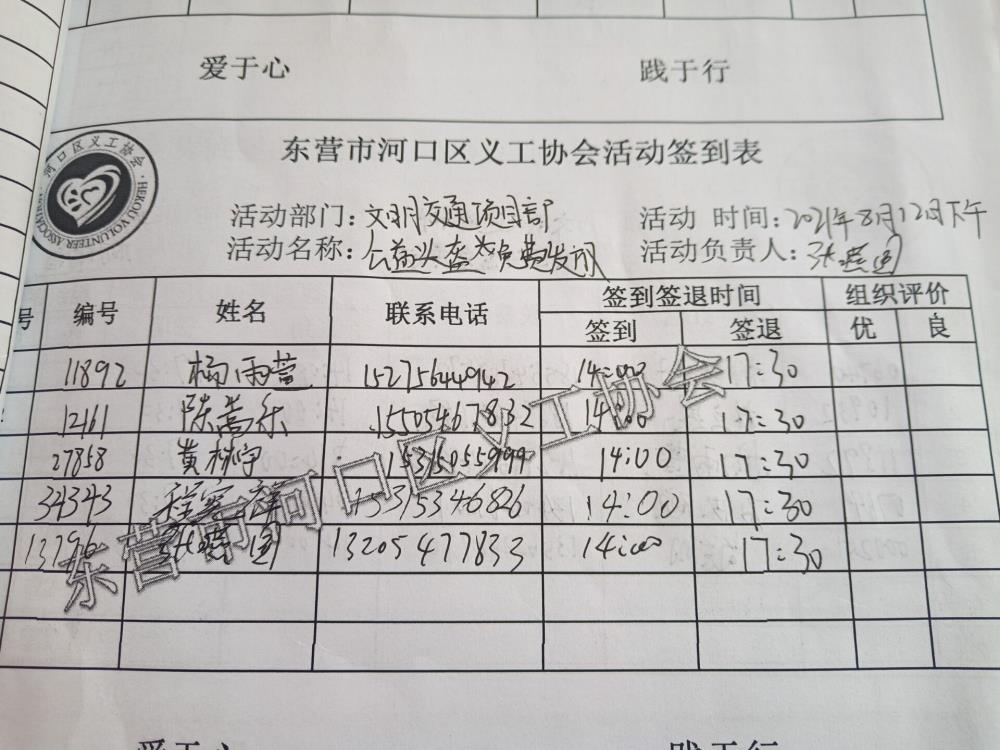 爱于心 践于行
河口区义工协会
HEKOU VOLUNTEER ASSOCIATION
东营市河口区义工协会活动签到表
活动部门：文明交通项目部 活动 时间：2021年8月12日下午
活动名称：公益头盔免费发放 活动负责人：张
号 编号 姓名 联系电话 签到签退时间 组织评价
签到 签退 优 良
11892 杨雨萱 15275644942 14:00 17:30
12161 陈嵩乐 15505467832 14:00 17:30
27858 黄 14:00 17:30
34343 程 15315346826 14:00 17:30
13796 张 13205477833 14:00 17:30
东营市河口区义工协会
爱于心 践于行